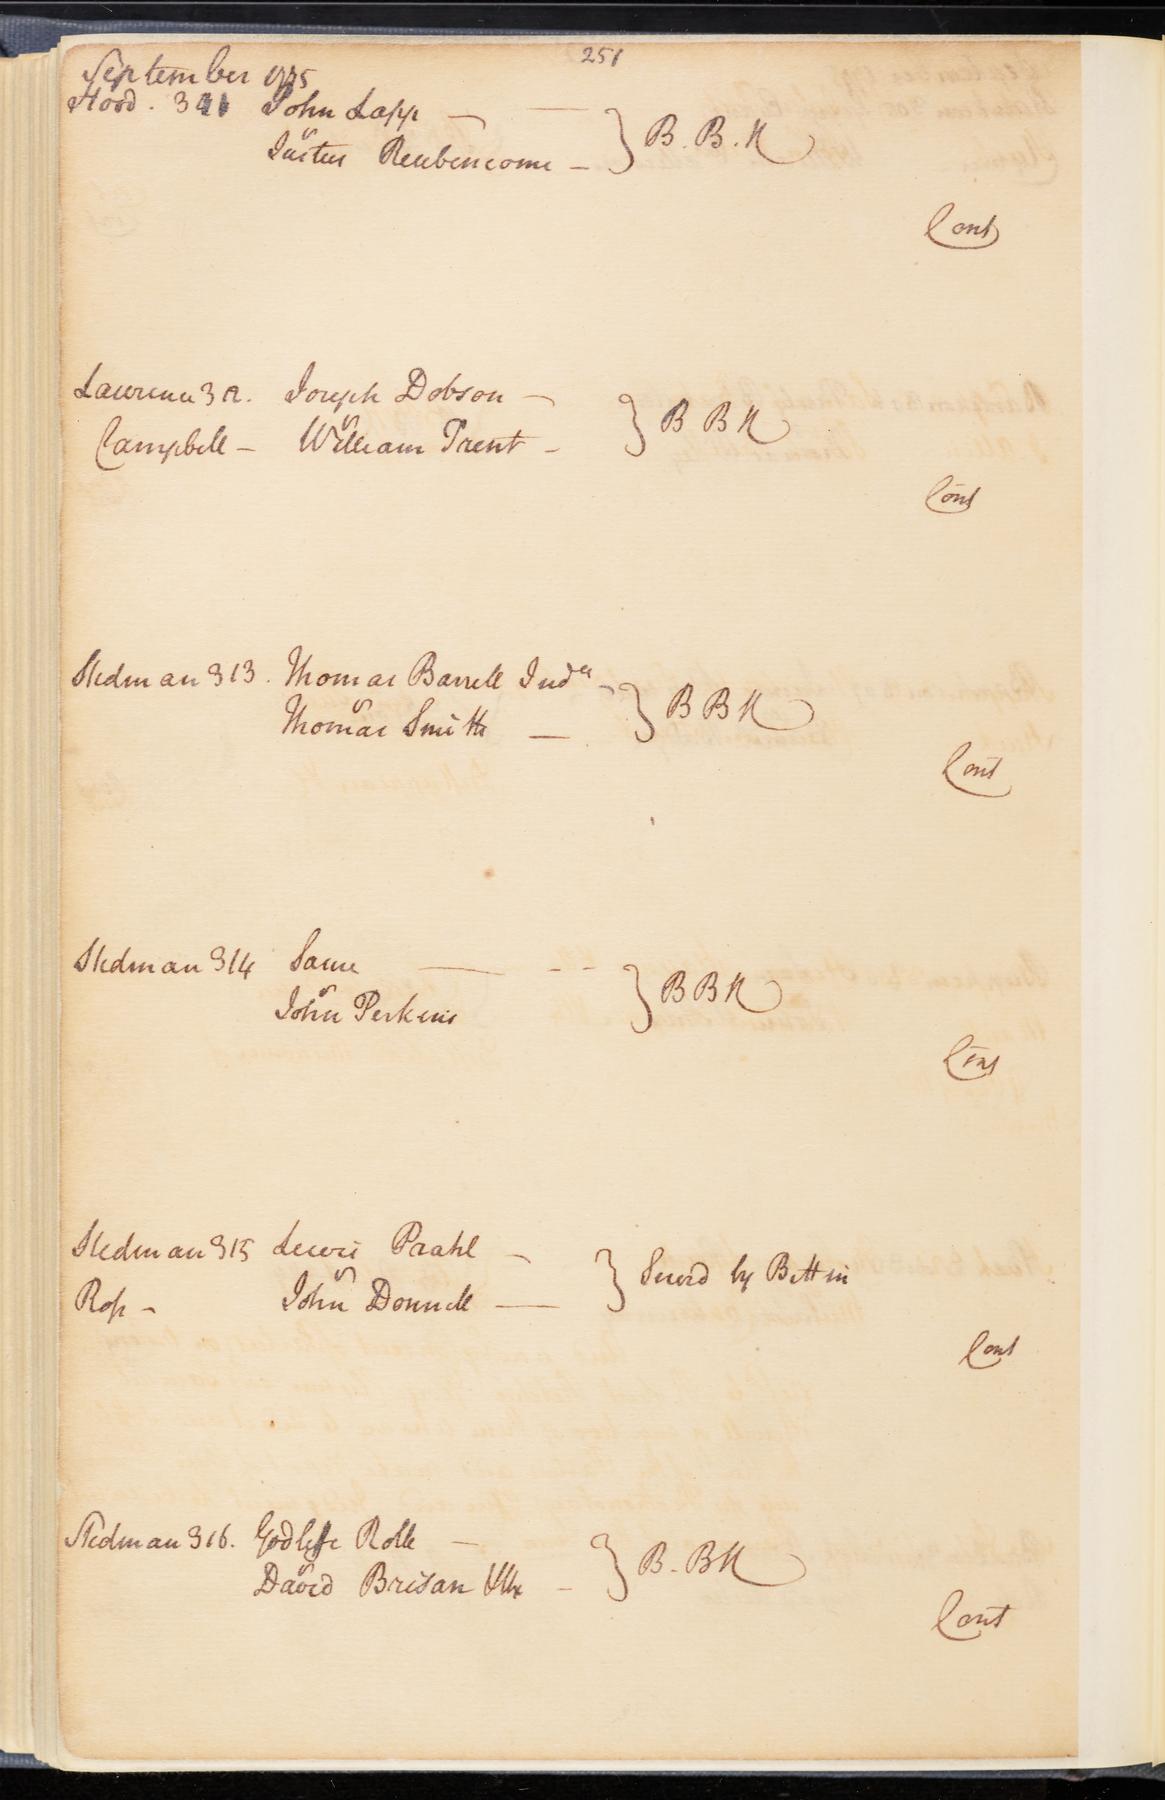 251
September 1775
Hood. 311 John Lapp —
vs
Justus Reubencome — } B. B. R
Cont
Lawrence 312. Joseph Dobson —
vs
Campbell — William Trent — } B B R
Cont
Stedman 313. Thomas Barrell Indee —
vs
Thomas Smith — } B B R
Cont
Stedman 314 Same — - -
vs
John Perkins } B B R
Cont
Stedman 315 Lewis Prahl —
vs
Ross — John Donnell — } Servd by Bettin
Cont
Stedman 316. Godleffe Rolle —
vs
David Brisan — } B. B R
Cont